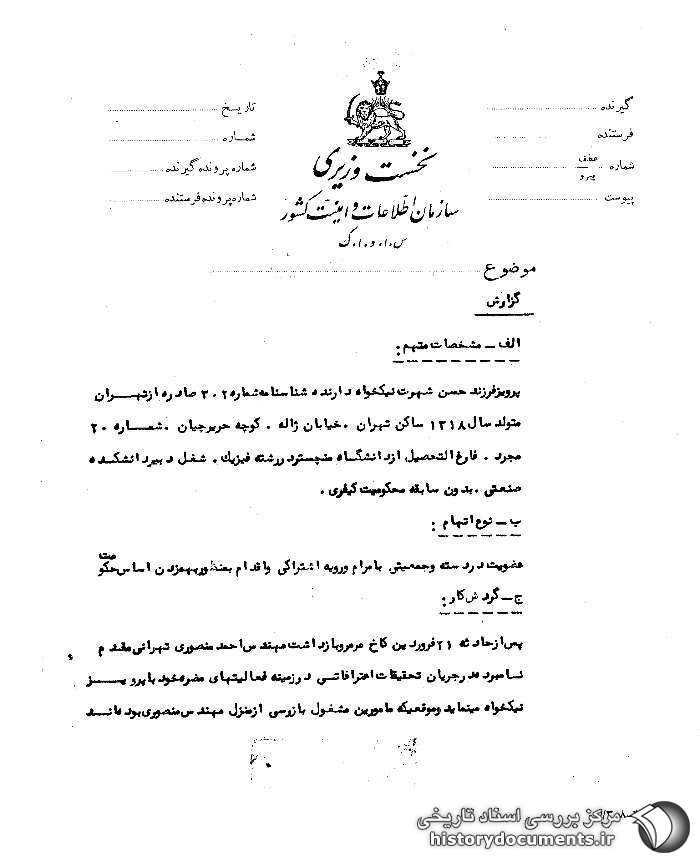 گیرنده
فرستنده
شماره عطف پیرو
پیوست
نخست وزیری
سازمان اطلاعات و امنیت کشور
س.ا.و.ا.ک
تاریخ
شماره
شماره پرونده گیرنده
شماره پرونده فرستنده
موضوع
گزارش
الف - مشخصات متهم :
پرویز فرزند حسن شهرت نیکخواه دارنده شناسنامه شماره ۳۰۲ صادره از تهران
متولد سال ۱۳۱۸ ساکن تهران ، خیابان ژاله ، کوچه حریرچیان ، شماره ۲۰
مجرد ، فارغ التحصیل از دانشگاه منچستر در رشته فیزیک، شغل دبیر دانشکده
صنعتی ، بدون سابقه محکومیت کیفری ،
ب - نوع اتهام :
عضویت در دسته و جمعیتی با مرام و رویه اشتراکی و اقدام بمنظور بهمزدن اساس حکومت
ج - گردش کار :
پس از حادثه ۲۱ فروردین کاخ مرمر و بازداشت مهندس احمد منصوری تهرانی مقدم
نامبرده در جریان تحقیقات اعترافاتی در زمینه فعالیتهای مضره خود با پرویز
نیکخواه مینماید و موقعیکه مامورین مشغول بازرسی از منزل مهندس منصوری بوده‌اند
مرکز بررسی اسناد تاریخی
historydocuments.ir